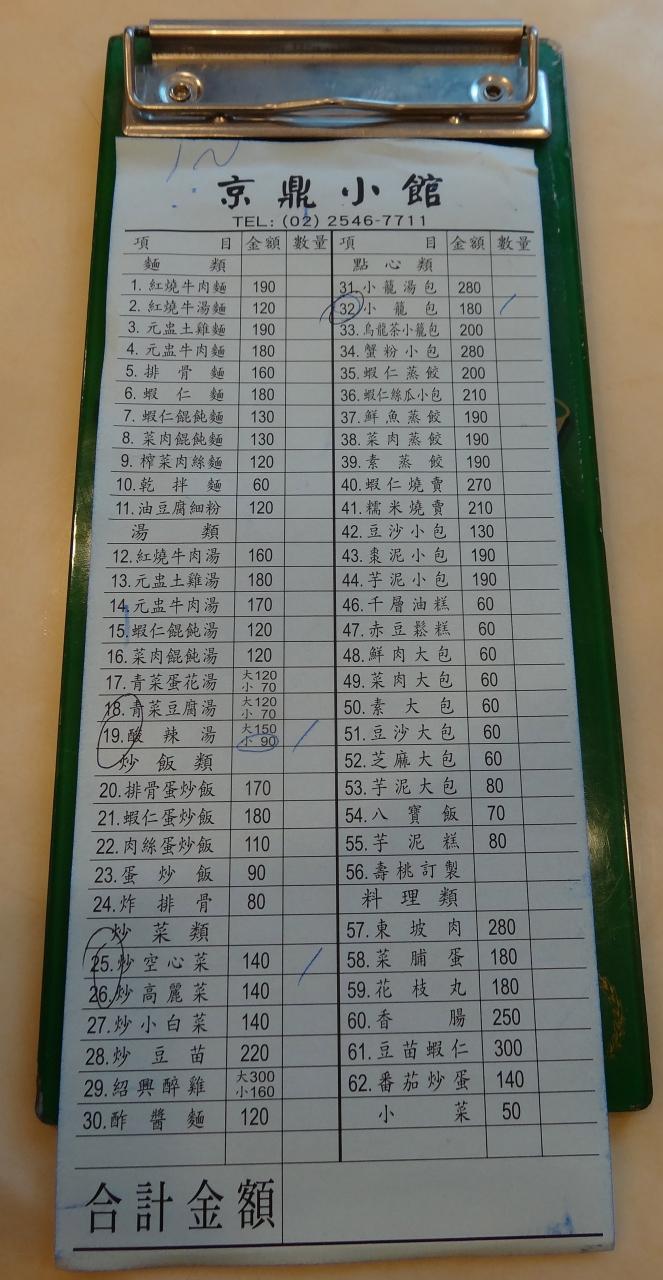 京鼎小館
TEL: (02) 2546-7711
項 目 金額 數量
麵 類
1. 紅燒牛肉麵 190
2. 紅燒牛湯麵 120
3. 元盅土雞麵 190
4. 元盅牛肉麵 180
5. 排骨麵 160
6. 蝦仁麵 180
7. 蝦仁餛飩麵 130
8. 菜肉餛飩麵 130
9. 榨菜肉絲麵 120
10. 乾拌麵 60
11. 油豆腐細粉 120
湯 類
12. 紅燒牛肉湯 160
13. 元盅土雞湯 180
14. 元盅牛肉湯 170
15. 蝦仁餛飩湯 120
16. 菜肉餛飩湯 120
17. 青菜蛋花湯 大120 小 70
18. 青菜豆腐湯 大120 小 70
19. 酸辣湯 大150 小 90
炒飯類
20. 排骨蛋炒飯 170
21. 蝦仁蛋炒飯 180
22. 肉絲蛋炒飯 110
23. 蛋炒飯 90
24. 炸排骨 80
炒菜類
25. 炒空心菜 140
26. 炒高麗菜 140
27. 炒小白菜 140
28. 炒豆苗 220
29. 紹興醉雞 大300 小160
30. 酢醬麵 120
項 目 金額 數量
點心類
31. 小籠湯包 280
32. 小籠包 180
33. 烏龍茶小籠包 200
34. 蟹粉小包 280
35. 蝦仁蒸餃 200
36. 蝦仁絲瓜小包 210
37. 鮮魚蒸餃 190
38. 菜肉蒸餃 190
39. 素蒸餃 190
40. 蝦仁燒賣 270
41. 糯米燒賣 210
42. 豆沙小包 130
43. 棗泥小包 190
44. 芋泥小包 190
46. 千層油糕 60
47. 赤豆鬆糕 60
48. 鮮肉大包 60
49. 菜肉大包 60
50. 素大包 60
51. 豆沙大包 60
52. 芝麻大包 60
53. 芋泥大包 80
54. 八寶飯 70
55. 芋泥糕 80
56. 壽桃訂製
料理類
57. 東坡肉 280
58. 菜脯蛋 180
59. 花枝丸 180
60. 香腸 250
61. 豆苗蝦仁 300
62. 番茄炒蛋 140
小菜 50
合計金額